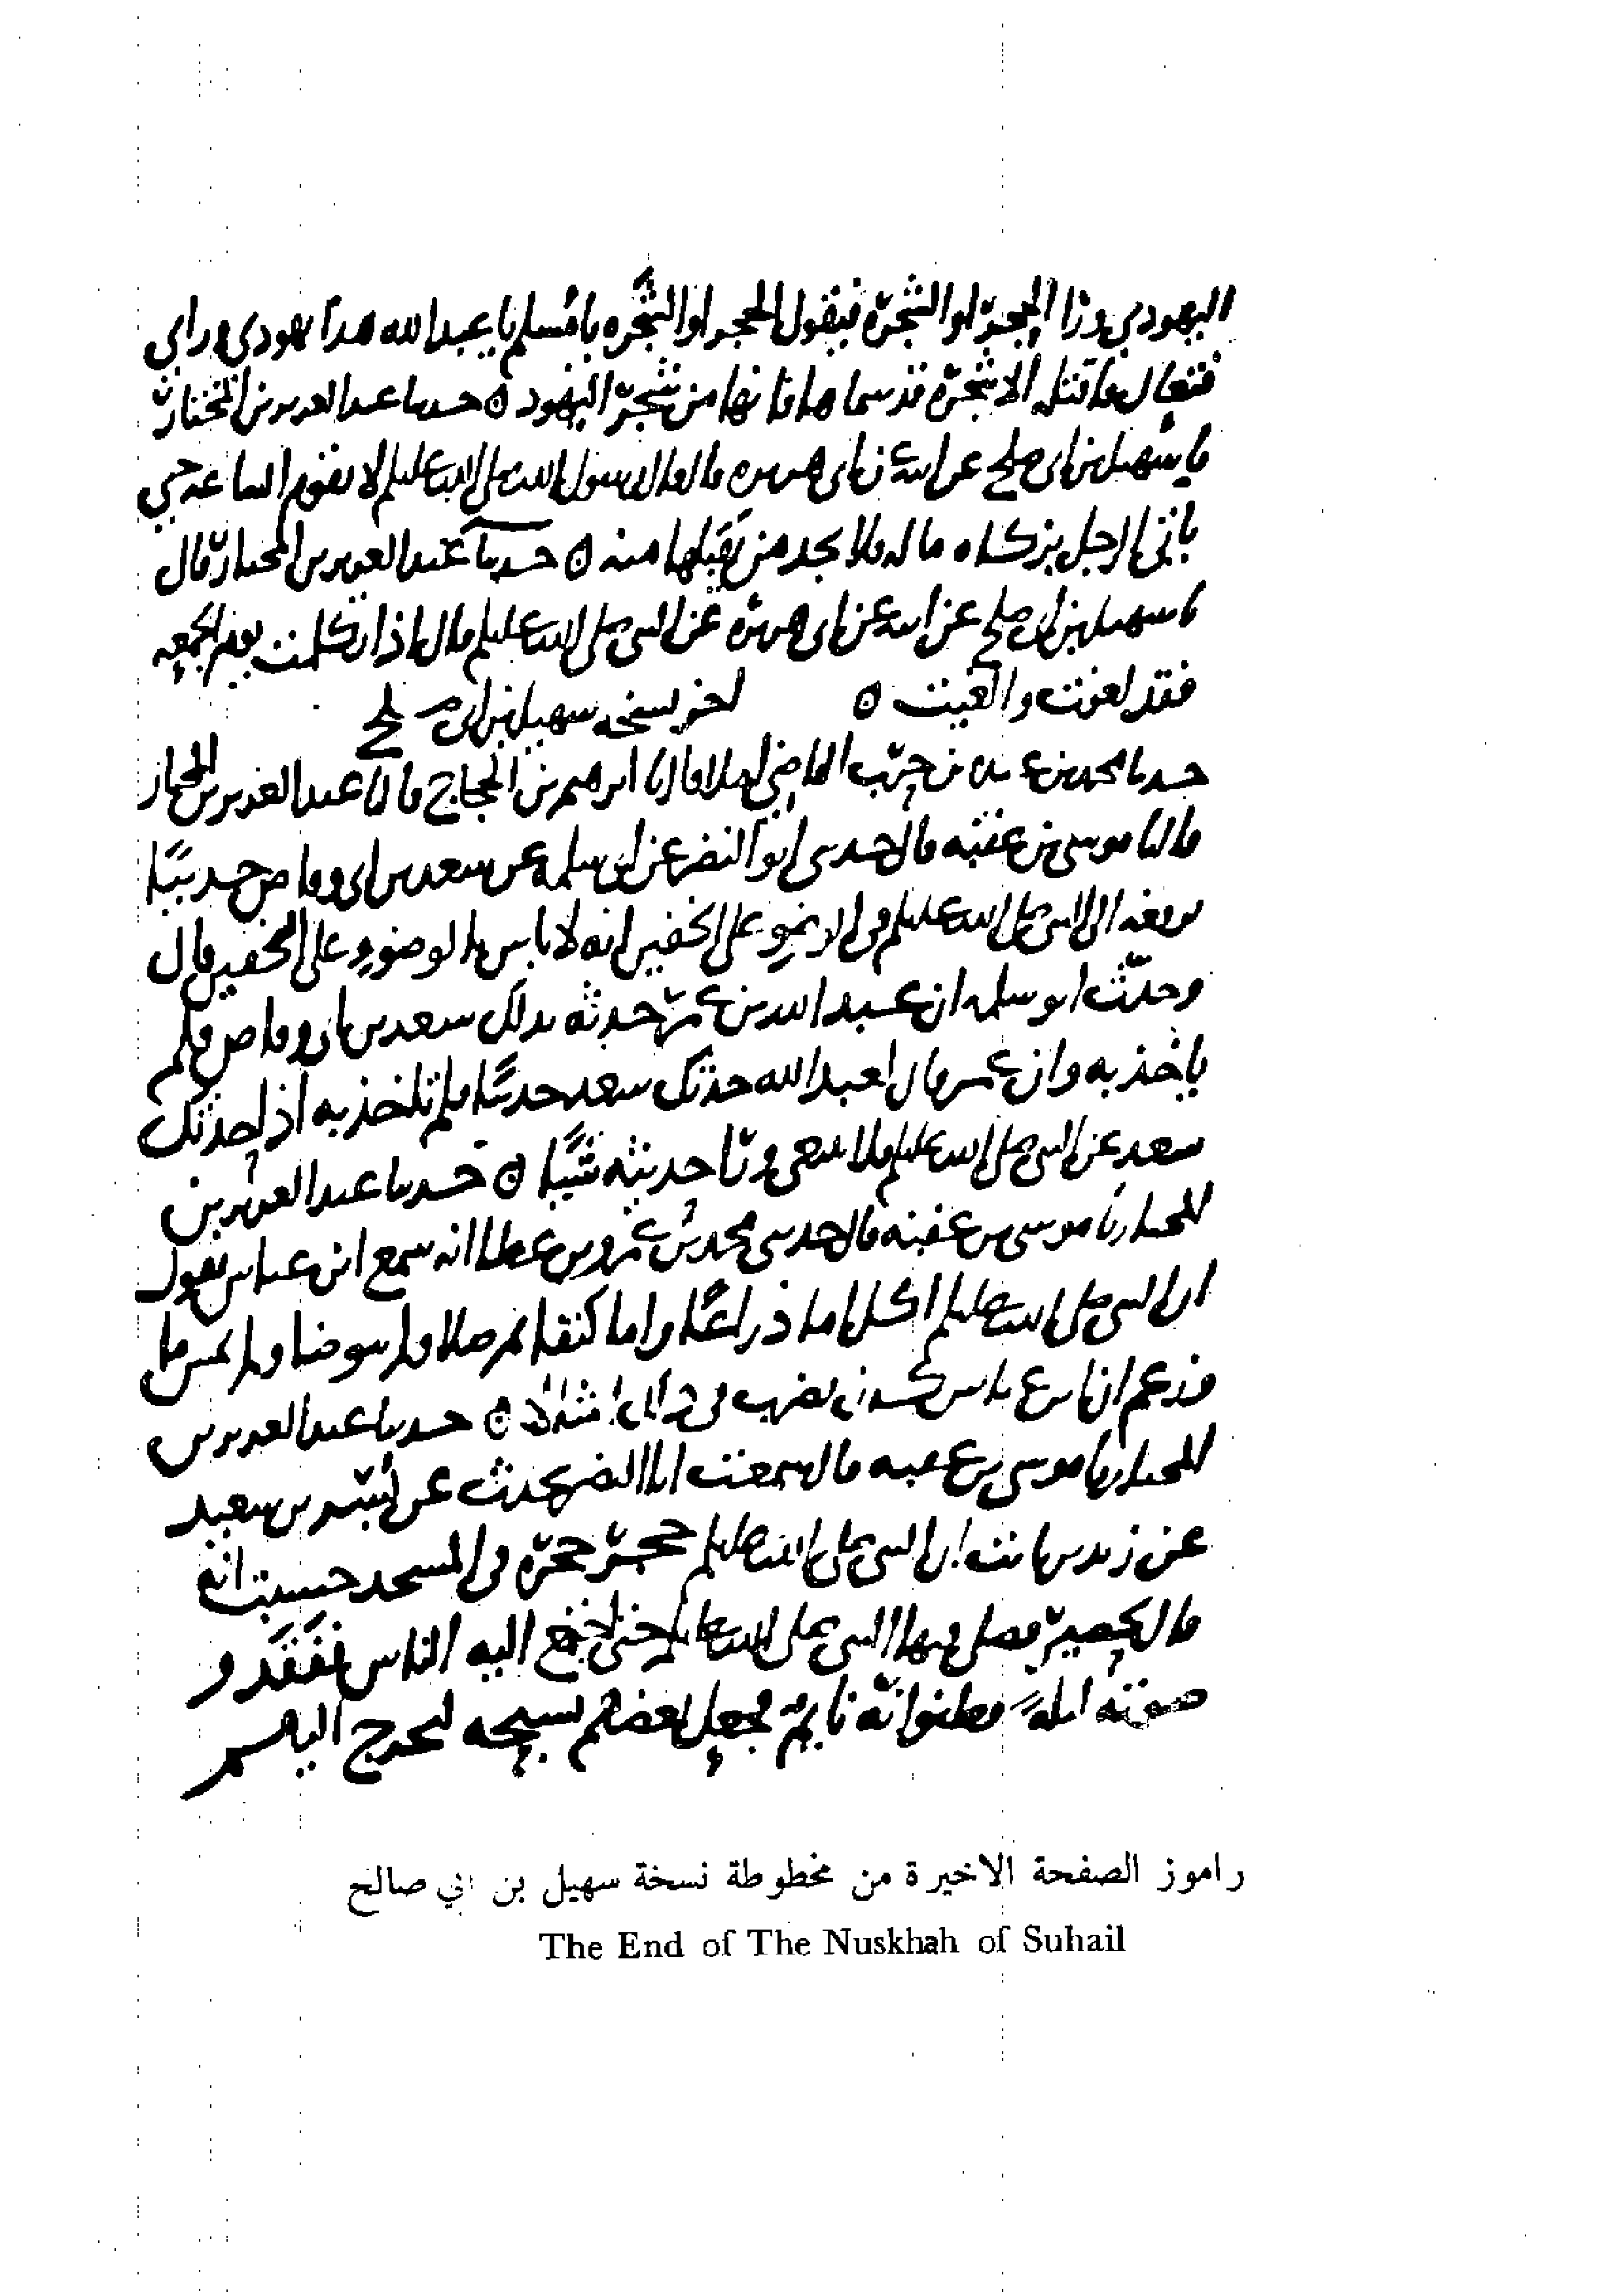 اليهودي ورا الحجر او الشجره فيقول الحجر او الشجره يا مسلم يا عبدالله هدا يهودي وراي
فتعال فاقتله الا شجره قد سماها فانها من شجر اليهود ه حدىنا عبدالعزيز بن المختار
نا سهيل بن ابي صلح عن ابيه عن ابي هريره قال قال رسول الله صلى الله عليه لا تقوم الساعه حتى
ياتي الرجل بزكاه ماله فلا يجد من يقبلها منه ه حدىنا عبد العزيز بن المختار قال
نا سهيل بن ابي صلح عن ابيه عن ابي هريره عن النبي صلى الله عليه قال اذا تكلمت يوم الجمعه
فقد لغوت والغيت ه اخر نسخه سهيل بن ابي صلح
حدىنا محمد بن عبده بن حرب القاضي املا قال نا ابرهيم بن الحجاج قال نا عبدالعزيز بن المختار
قال نا موسى بن عقبه قال حدىني ابو النضر عن ابي سلمه عن سعد بن ابي وقاص حديثا
يرفعه الى النبي صلى الله عليه في الوضوء على الخفين انه لا باس بالوضوء على الخفين قال
وحدث ابو سلمه ان عبد الله بن عمر حدثه بدلك سعد بن ابي وقاص فلم
ياخذ به وان عمر قال لعبد الله حدثك سعد حديثا فلم تاخذ به اذا حدثك
سعد عن النبي صلى الله عليه فلا تبتغي ورا حديثه شيا ه حدىنا عبد العزيز بن
المختار نا موسى بن عقبه قال حدىني محمد بن عمرو بن عطا انه سمع ابن عباس يقول
ان النبي صلى الله عليه اكل اما ذراعا واما كتفا ثم صلا ولم يتوضا ولم يمس ما
فزعم ان ابن عباس كان يضرب في ذلك امثالا ه حدىنا عبد العزيز بن
المختار نا موسى بن عقبه قال سمعت ابا النضر يحدث عن بسر بن سعيد
عن زيد بن ثابت ان النبي صلى الله عليه حجر حجره في المسجد حسبت انه
قال بحصير فصلى فيها النبي صلى الله عليه حتى اجتمع اليه الناس ففقدو
صوته ليله فظنوا انه نايم فجعل بعضهم يسبح ليخرج اليهم
راموز الصفحة الاخيرة من مخطوطة نسخة سهيل بن ابي صالح
The End of The Nuskhah of Suhail